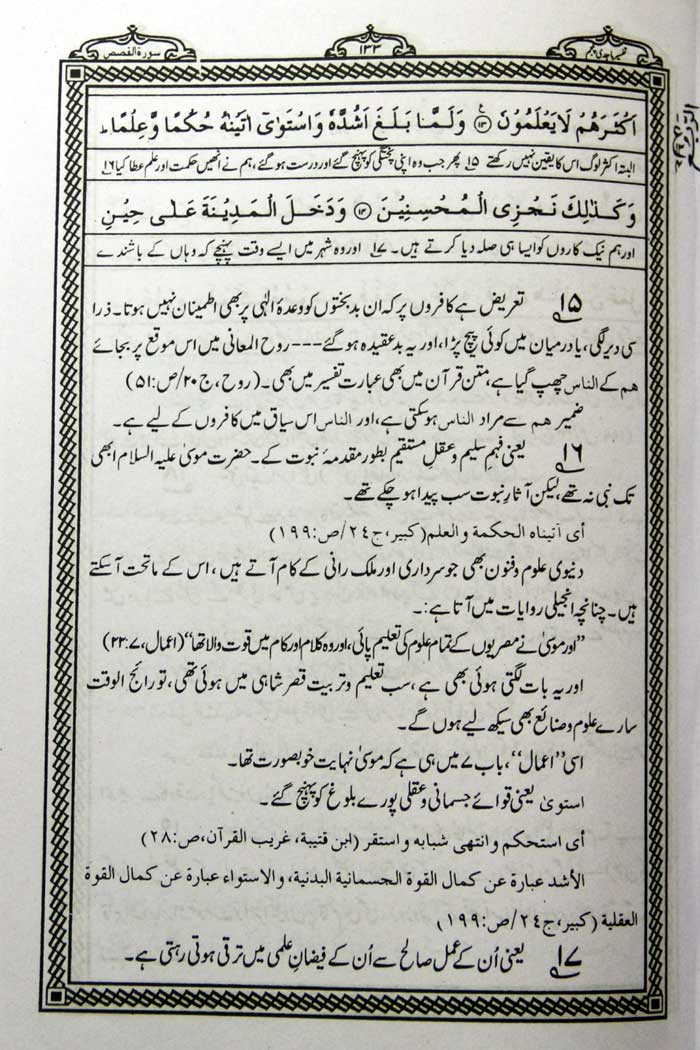 تفسیر ماجدی پنجم
۱۳۳
سورة القصص
اَكْثَرَهُمْ لَا يَعْلَمُوْنَ ۝۱۳ وَلَمَّا بَلَغَ اَشُدَّهٗ وَاسْتَوٰٓى اٰتَيْنٰهُ حُكْمًا وَّعِلْمًا ط
البتہ اکثر لوگ اس کا یقین نہیں رکھتے ۱۵ پھر جب وہ اپنی پختگی کو پہنچ گئے اور درست ہو گئے، ہم نے انھیں حکمت اور علم عطا کیا ۱۶
وَكَذٰلِكَ نَجْزِى الْمُحْسِنِيْنَ ۝۱۴ وَدَخَلَ الْمَدِيْنَةَ عَلٰى حِيْنِ
اور ہم نیک کاروں کو ایسا ہی صلہ دیا کرتے ہیں۔ ۱۷ اور وہ شہر میں ایسے وقت پہنچے کہ وہاں کے باشندے
۱۵ تعریض ہے کافروں پر کہ ان بدبختوں کو وعدۂ الٰہی پر بھی اطمینان نہیں ہوتا۔ ذرا
سی دیر لگی، یا درمیان میں کوئی پیچ پڑا، اور یہ بدعقیدہ ہو گئے --- روح المعانی میں اس موقع پر بجائے
هم کے الناس چھپ گیا ہے، متن قرآن میں بھی عبارت تفسیر میں بھی۔ (روح، ج ۲۰/ص:۵۱)
ضمیر هم سے مراد الناس ہو سکتی ہے، اور الناس اس سیاق میں کافروں کے لیے ہے۔
۱۶ یعنی فہم سلیم و عقل مستقیم بطور مقدمۂ نبوت کے۔ حضرت موسیٰ علیہ السلام ابھی
تک نبی نہ تھے، لیکن آثار نبوت سب پیدا ہو چکے تھے۔
أی آتیناه الحکمة و العلم (کبیر، ج ۲٤/ص:۱۹۹)
دنیوی علوم و فنون بھی جو سرداری اور ملک رانی کے کام آتے ہیں، اس کے ماتحت آ سکتے
ہیں۔ چنانچہ انجیلی روایات میں آتا ہے:۔
”اور موسیٰ نے مصریوں کے تمام علوم کی تعلیم پائی، اور وہ کلام اور کام میں قوت والا تھا“ (اعمال، ۷:۲۲)
اور یہ بات لگتی ہوئی بھی ہے، سب تعلیم و تربیت قصر شاہی میں ہوئی تھی، تو رائج الوقت
سارے علوم و ضائع بھی سیکھ لیے ہوں گے۔
اسی ”اعمال“، باب ۷ میں ہی ہے کہ موسیٰ نہایت خوبصورت تھا۔
استوی یعنی قوائے جسمانی و عقلی پورے بلوغ کو پہنچ گئے۔
أی استحکم و انتهی شبابه و استقر (ابن قتیبة، غریب القرآن، ص:۲۸)
الأشد عبارة عن کمال القوة الجسمانیة البدنیة، والاستواء عبارة عن کمال القوة
العقلیة (کبیر، ج ۲٤/ص:۱۹۹)
۱۷ یعنی اُن کے عمل صالح سے اُن کے فیضان علمی میں ترقی ہوتی رہتی ہے۔